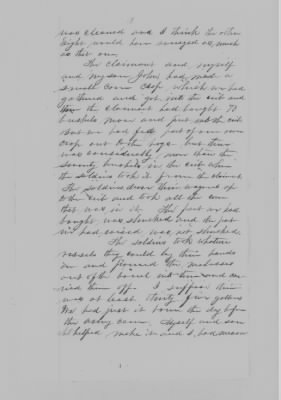 was cleaned and I think the other
eight would have averaged as much
as this one.
The claimant and myself
and my son John, had made a
small corn crop which we had
gathered and got into the crib and
the claimant had bought 70
bushels more and put in the crib
But we had fed part of our own
crop out to the hogs but there
was considerably more than the
seventy bushels in the crib when
the soldiers took it from the claimant.
The soldiers drove their wagons up
to the crib and took all the corn
that was in it. The part we had
bought was shucked and the part
we had raised was not shucked.
The soldiers took whatever
vessels they could lay their hands
on and poured the molasses
out of the barrel into them and car
ried them off. I suppose there
was at least thirty five gallons
We had just it home the day before
the army came. Myself and son
helped make it and I had